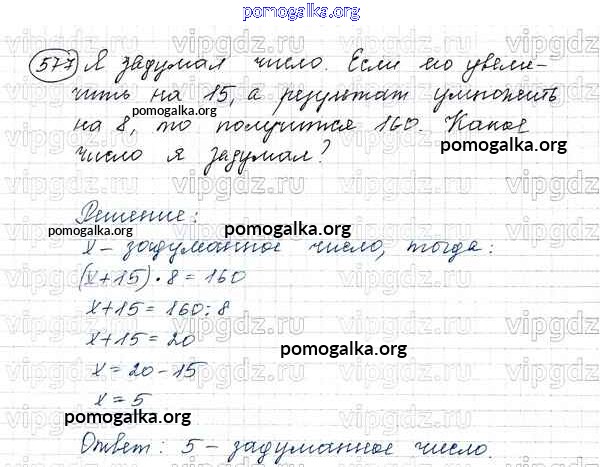 pomogalka.org
577 Я задумал число. Если его увели-
чить на 15, а результат умножить
на 8, то получится 160. Какое
число я задумал?
Решение:
x – задуманное число, тогда:
(x+15)·8=160
x+15=160:8
x+15=20
x=20-15
x=5
Ответ: 5 – задуманное число.
vipgdz.ru
pomogalka.org
pomogalka.org
pomogalka.org
pomogalka.org
pomogalka.org
pomogalka.org